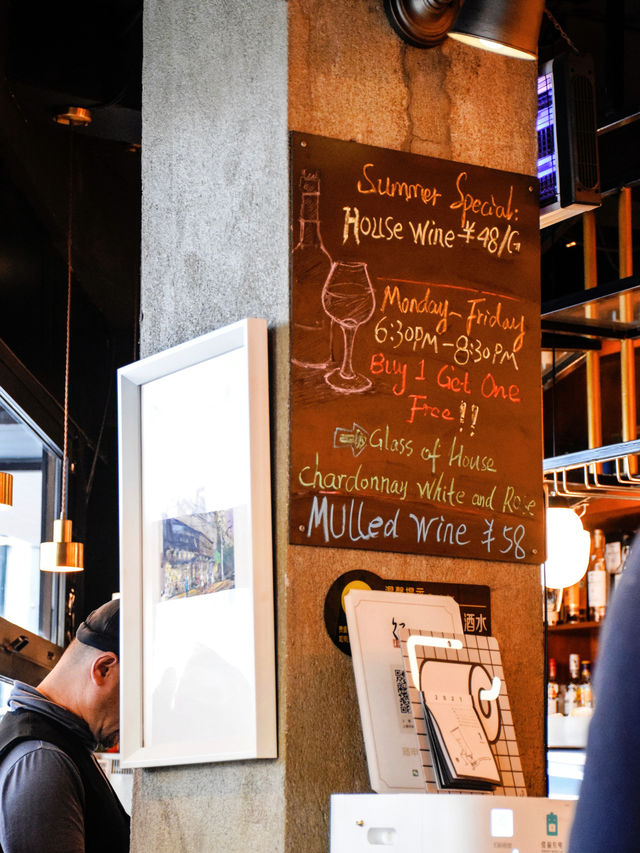 Summer Special:
House Wine ¥48/G
Monday-Friday
6:30PM-8:30PM
Buy 1 Get One
Free!!
Glass of House
Chardonnay White and Rose
MULLed Wine ¥58
温馨提示
酒水
2021